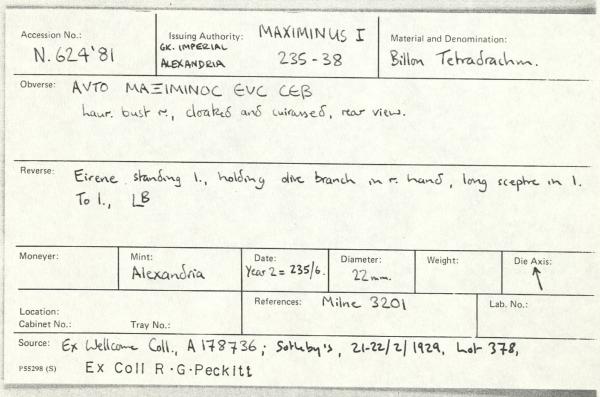 Accession No.:
N.624'81
Issuing Authority: MAXIMINUS I
GK. IMPERIAL
ALEXANDRIA 235-38
Material and Denomination:
Billon Tetradrachm.
Obverse: AVTO MAΞIMINOC EVC CEB
laur. bust r., cloaked and cuirassed, rear view.
Reverse: Eirene standing l., holding olive branch in r. hand, long sceptre in l.
To l., LB
Moneyer:
Mint:
Alexandria
Date:
Year 2 = 235/6.
Diameter:
22mm.
Weight:
Die Axis:
↖
Location:
Cabinet No.: Tray No.:
References: Milne 3201
Lab. No.:
Source: Ex Wellcome Coll., A 178736; Sotheby's, 21-22/2/1929, Lot 378,
P55298 (S) Ex Coll R.G.Peckitt